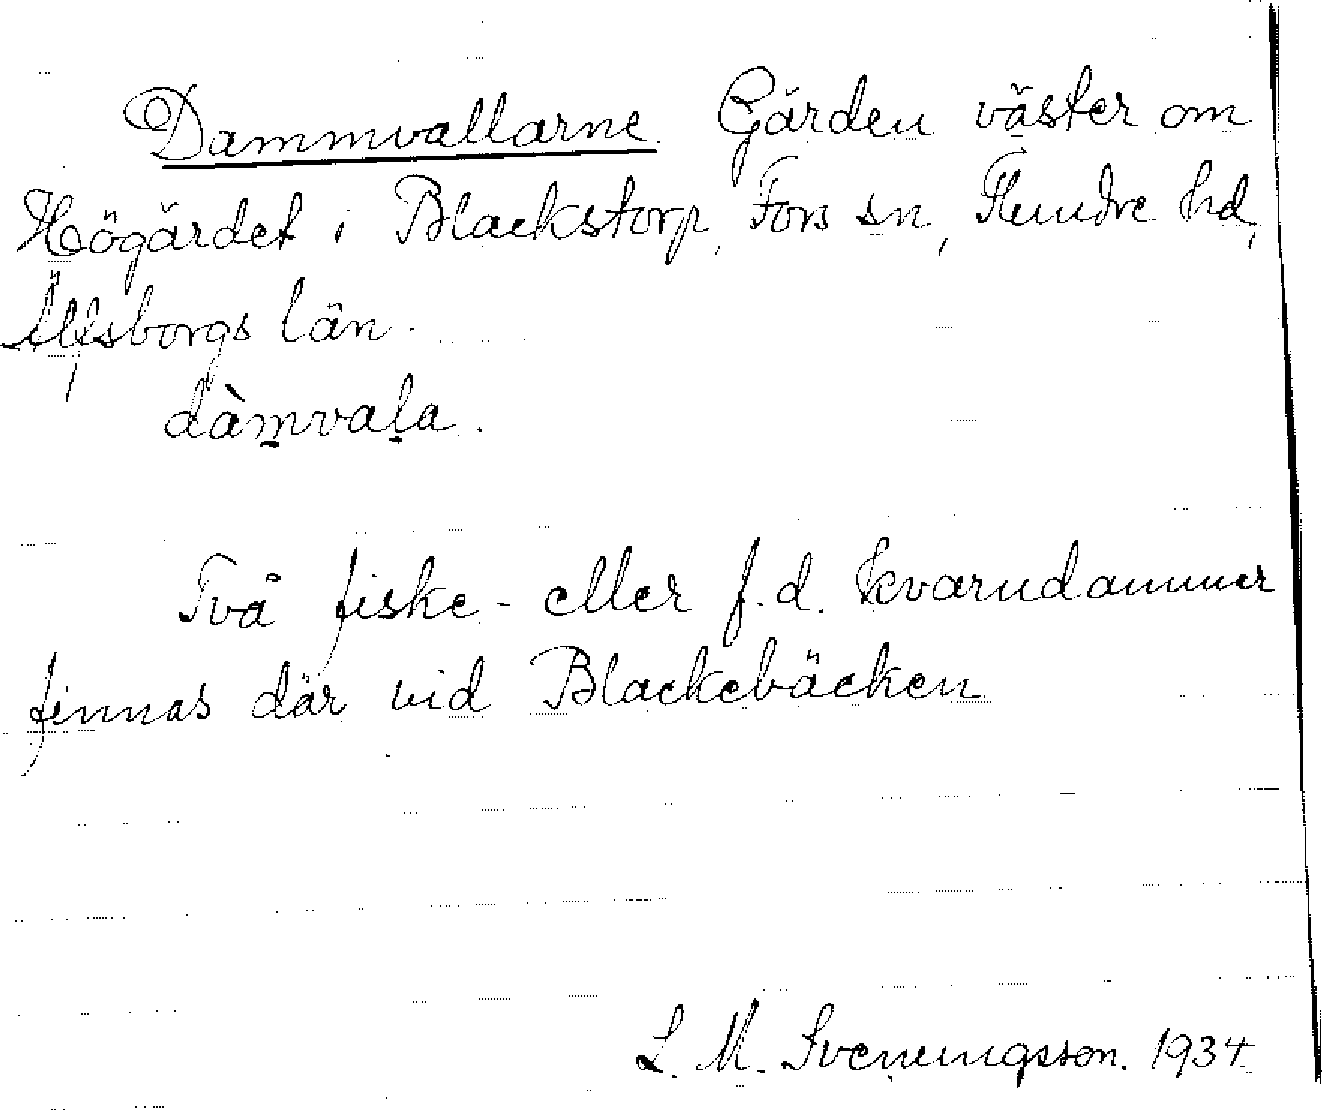 Dammvallarne. Gärden väster om
Högärdet i Blackstorp, Fors sn, Flundre hd,
Älfsborgs län.
dàm̱vaḻa.
Två fiske- eller f.d. kvarndammer
finnas där vid Blackebäcken
L. M. Svenungsson. 1934.